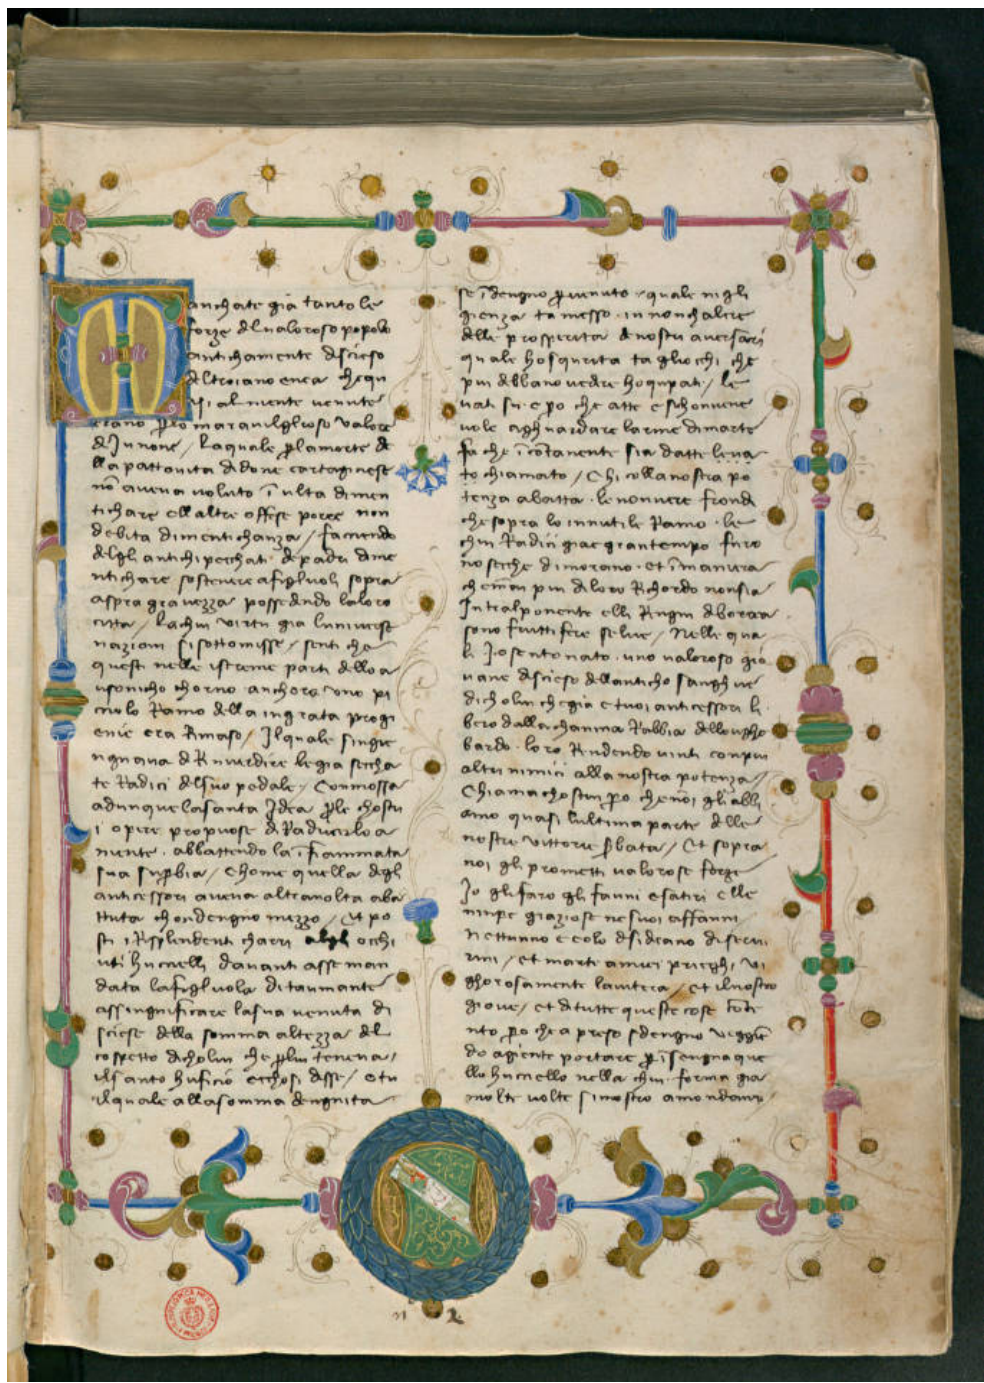 M
anchate già tanto le
forze del ualoroso popolo
antichamente disceso
del troiano enea che qu
asi al niente uenute
erano p lo marauiglioso ualore
di Junone / la quale p la morte de
lla pattouita di done cartaginese
nō aueua uoluto ī ulta dimen
tichare ell altre offese porre non
debita dimentichanza / faciendo
degli antichi perchati de padri dime
ntichare sostenere a figluoli sopra
aspra grauezza possedendo la loro
citta / la chui uirtu gia luniuerse
nazioni si sottomisse / senti che
questi nelle istreme parti dello a
usonicho chorno anchora uno pi
ciolo Ramo della ingrata progi
enie era Rimaso / Il quale singie
ngnaua di Rinuerdire le gia seccha
te Radici del suo pedale / Conmossa
adunque la santa Idea p le chostu
i opere propuose di Raducerlo a
niente abbattendo la īfiammata
sua supbia / chome quella degli
anticessori aueua altra uolta aba
ttuta chon dengno mezzo / Et po
sti i Risplendenti charri algli occhi
uti huccielli dauanti asse man
data la figluola di taumante
assingnificare la sua uenuta di
sciese della somma altezza del
cospetto di cholui che p lui teneua /
il santo huficio ecchosi disse / o tu
il quale alla somma dengnita
se īdengno peruenuto quale nigli
gienza ta messo in non chalere
delle prosperita de nostri auersari
quale hosqurita ta gli occhi che
piu debbano uedere hoqupati / le
uati su e po che atte e schonuene
uole aghuardare larme di marte
fa che īcōtanente sia da tte leua
to chiamato / Chi colla nostra po
tenza abatta le nonuere frondi
che sopra lo innutile Ramo le
chui Radici gia e gran tempo furo
no secche dimorano et ī maniera
che mai piu di loro Richordo non sia
In tral ponente elli Rengni di borea
sono fruttifere selue / Nelle qua
li Io sento nato uno ualoroso gio
uane disceso dell anticho sanghue
di cholui che gia e tuoi anticessori li
bero dalla channina Rabbia dello ungho
bardo loro Rendendo uinti con piu
altri nimici alla nostra potenza /
Chiama chostui po che noi gli abbi
amo quasi lultima parte delle
nostre uittorie sbata / Et sopra
noi gli prometti ualorose forze
Io gli faro gli fauni e satiri e lle
ninpe graziose ne suoi affanni
Nettunno e colo disiderano di serui
rmi / et marte a miei prieghi ui
ghorosamente laiutera / et il nostro
gioue / et di tutte queste cose cōte
nto po che a preso sdengno ueggiē
do agiente portare p īsengna que
llo huccello nella chui forma gia
molte uolte si mostro a mondani